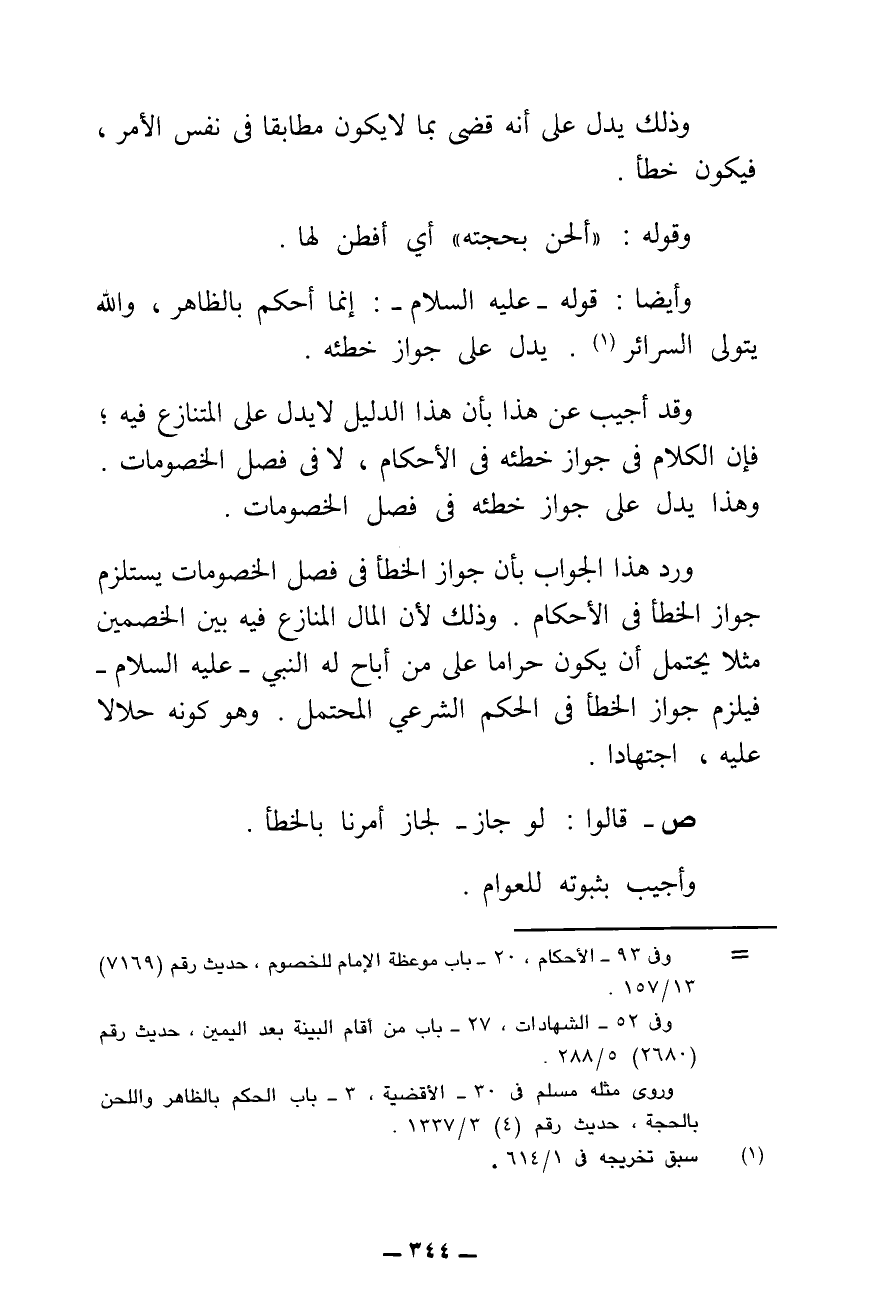 وذلك يدل على أنه قضى بما لايكون مطابقا فى نفس الأمر ،
فيكون خطأ .
وقوله : «ألحن بحجته» أي أفطن لها .
وأيضا : قوله ـ عليه السلام ـ : إنما أحكم بالظاهر ، والله
يتولى السرائر (١) . يدل على جواز خطئه .
وقد أجيب عن هذا بأن هذا الدليل لايدل على المتنازع فيه ؛
فإن الكلام فى جواز خطئه فى الأحكام ، لا فى فصل الخصومات .
وهذا يدل على جواز خطئه فى فصل الخصومات .
ورد هذا الجواب بأن جواز الخطأ فى فصل الخصومات يستلزم
جواز الخطأ فى الأحكام . وذلك لأن المال المنازع فيه بين الخصمين
مثلا يحتمل أن يكون حراما على من أباح له النبي ـ عليه السلام ـ
فيلزم جواز الخطأ فى الحكم الشرعي المحتمل . وهو كونه حلالا
عليه ، اجتهادا .
ص ـ قالوا : لو جاز ـ لجاز أمرنا بالخطأ .
وأجيب بثبوته للعوام .
= وفى ٩٣ ـ الأحكام ، ٢٠ ـ باب موعظة الإمام للخصوم ، حديث رقم (٧١٦٩)
١٥٧/١٣ .
وفى ٥٢ ـ الشهادات ، ٢٧ ـ باب من أقام البينة بعد اليمين ، حديث رقم
(٢٦٨٠) ٢٨٨/٥ .
وروى مثله مسلم فى ٣٠ ـ الأقضية ، ٣ ـ باب الحكم بالظاهر واللحن
بالحجة ، حديث رقم (٤) ١٣٣٧/٣ .
(١) سبق تخريجه فى ٦١٤/١ .
ـ ٣٤٤ ـ